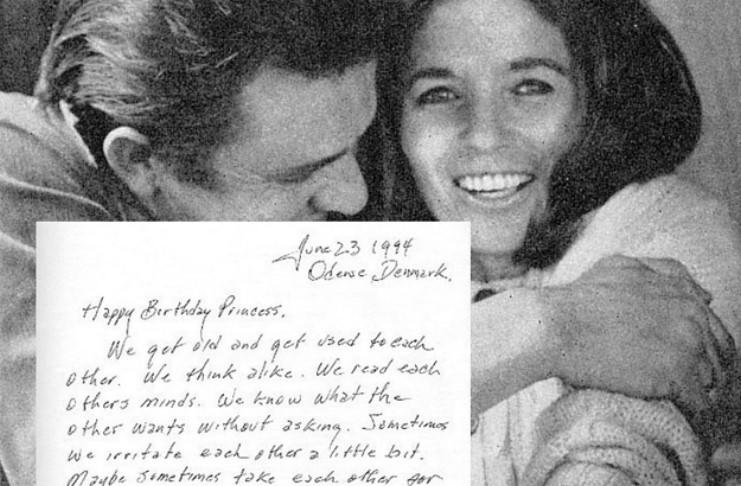 June 23 1994
Odense Denmark.
Happy Birthday Princess,
We get old and get used to each
other. We think alike. We read each
others minds. We know what the
other wants without asking. Sometimes
we irritate each other a little bit.
Maybe sometimes take each other for